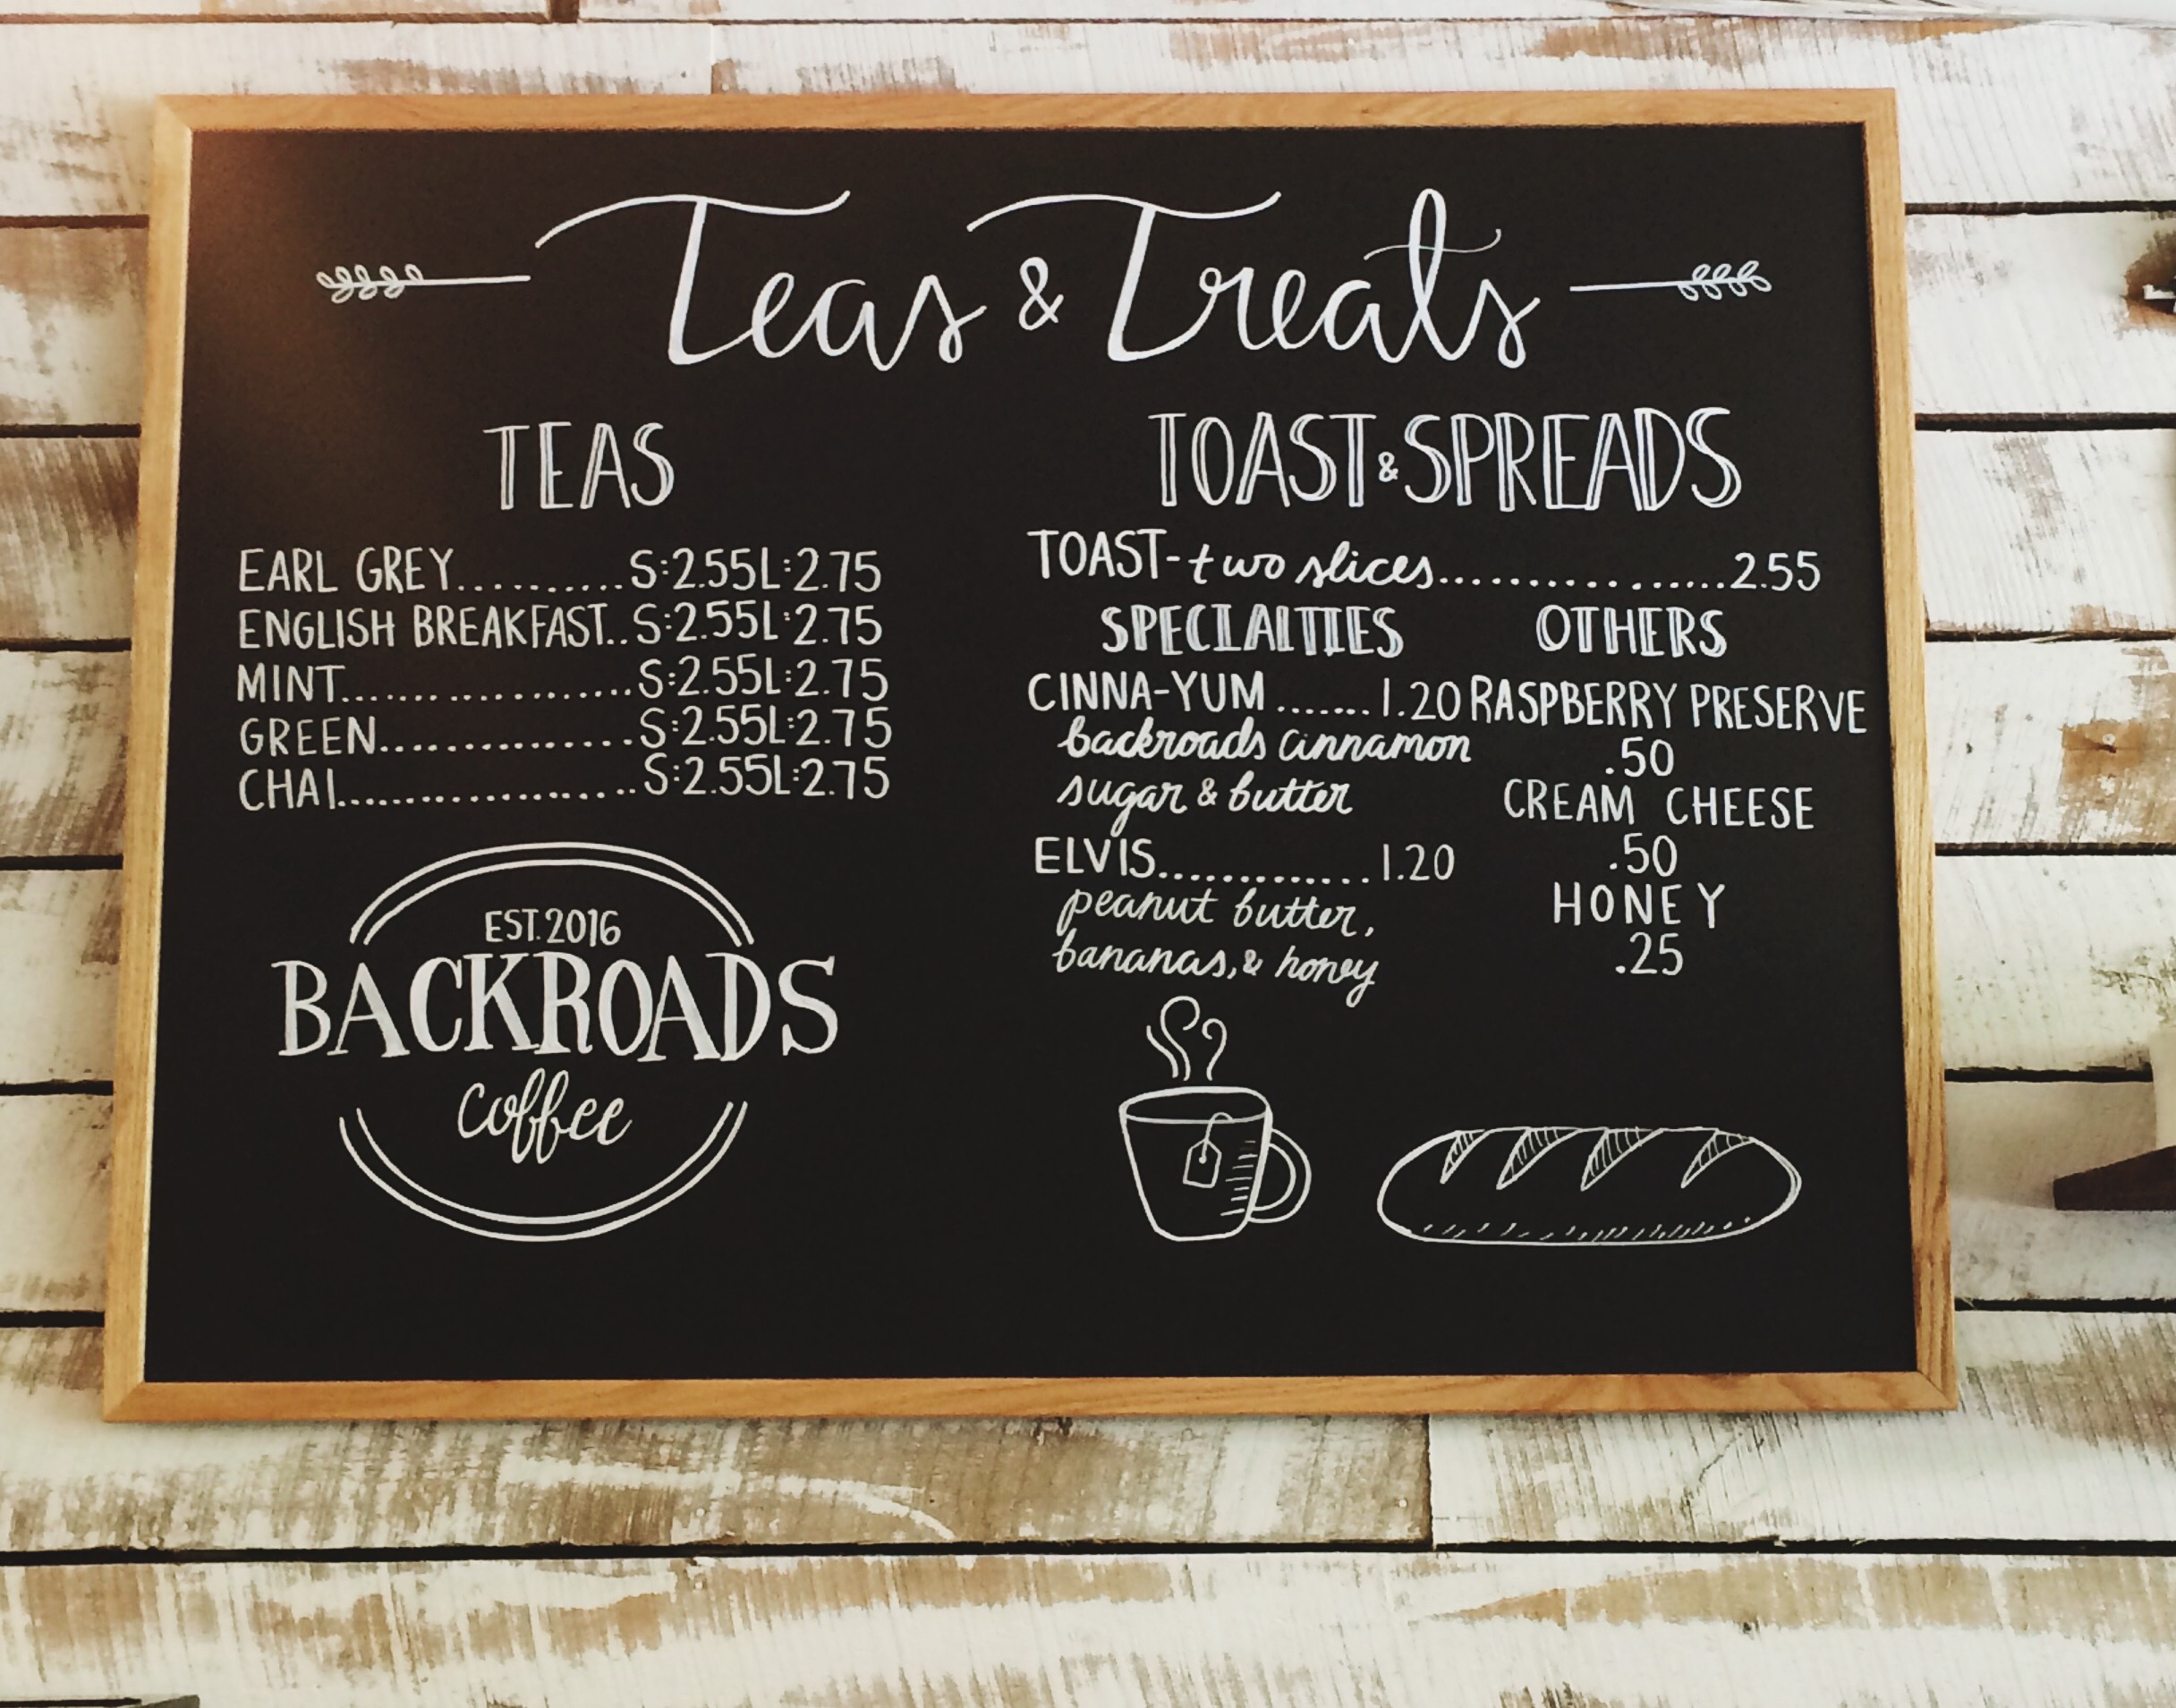 Teas & Treats
TEAS
EARL GREY..........S:2.55L:2.75
ENGLISH BREAKFAST..S:2.55L:2.75
MINT....................S:2.55L:2.75
GREEN................S:2.55L:2.75
CHAI.....................S:2.55L:2.75
EST.2016
BACKROADS
coffee
TOAST & SPREADS
TOAST-two slices..................2.55
SPECIALTIES
CINNA-YUM.......1.20
backroads cinnamon
sugar & butter
ELVIS.............1.20
peanut butter,
bananas, & honey
OTHERS
RASPBERRY PRESERVE
.50
CREAM CHEESE
.50
HONEY
.25